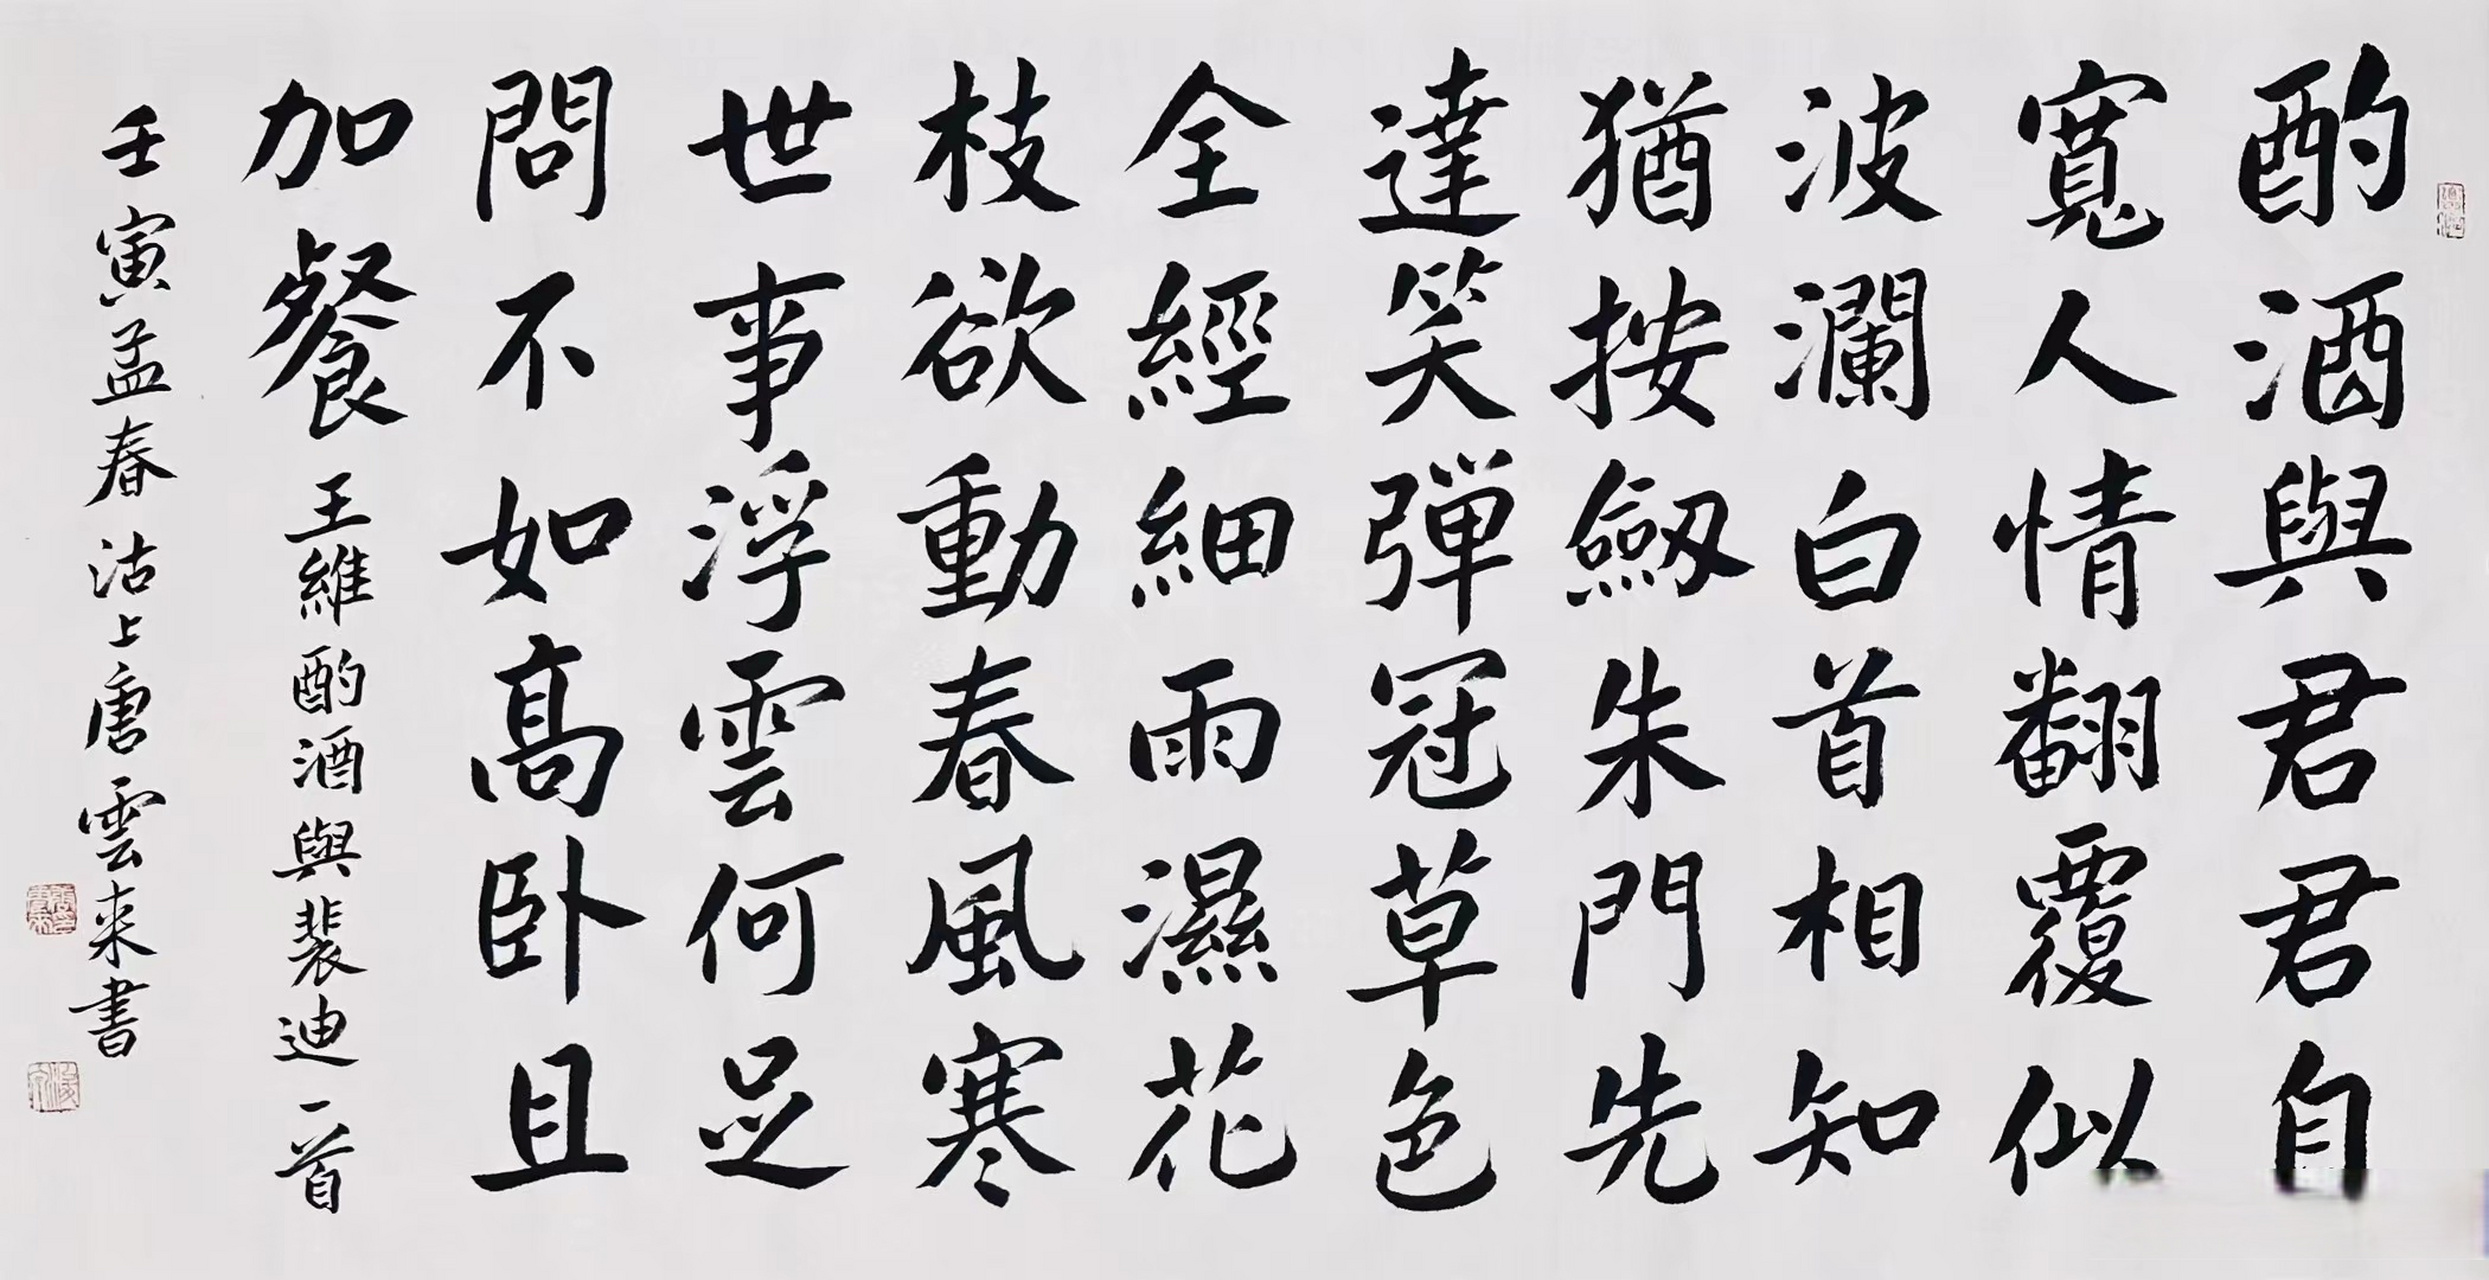 酌酒與君君自
寬人情翻覆似
波瀾白首相知
猶按劔朱門先
達笑彈冠草色
全經細雨濕花
枝欲動春風寒
世事浮雲何足
問不如高卧且
加餐 王維酌酒與裴迪一首
壬寅孟春沽上唐雲来書